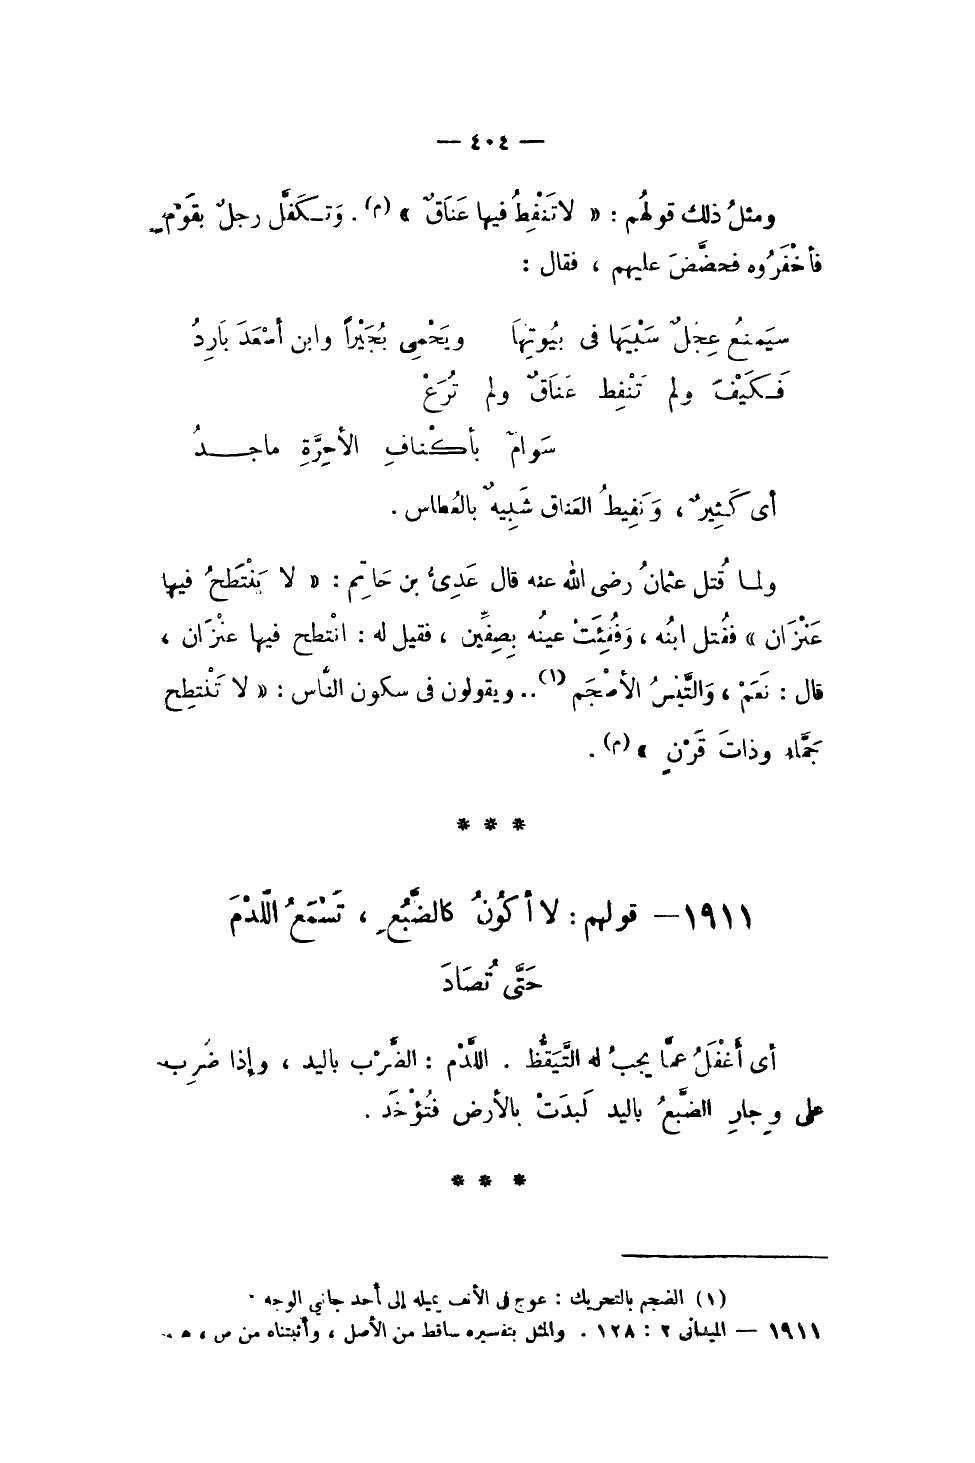 — ٤٠٤ —
ومثلُ ذلك قولهُم : « لا تَنْفِطُ فيها عَنَاقٌ » (م) . وَتكَفَّل رجلٌ بقَوْمٍ
فأخْفَرُوه فحضَّضَ عليهم ، فقال :
سَيَمنعُ عِجْلٌ سَبْيَها فى بُيوتِهَا ويَحْمِى بُجَيْراً وابن أسْعَدَ بَارِدُ
فكَيْفَ ولم تَنْفِط عَنَاقٌ ولم تُرَعْ
سَوامٌ بأكْنافِ الأحِرَّةِ ماجدُ
أى كَثِيرٌ ، وَنَفِيطُ العَناق شَبِيهٌ بالعُطاس .
ولما قُتل عثمانُ رضى الله عنه قال عَدِىُّ بن حَاتِم : « لا يَنْتَطحُ فيها
عَنْزَان » فقُتل ابنُه ، وَفُقِئَتْ عينُه بِصِفِّين ، فقيل له : انْتطح فيها عنْزَان ،
قال : نَعَمْ ، وَالتَّيْسُ الأضْجَم (١) .. ويقولون فى سكون النَّاس : « لا تَنْتطِح
جَمَّاء وذاتَ قَرْنٍ » (م) .
* * *
١٩١١ — قولهم : لا أكُونُ كالضَّبُعِ ، تَسْمَعُ اللَّدْمَ
حَتَّى تُصَادَ
أى أَغْفَلُ عمَّا يجبُ له التَّيَقُّظ . اللَّدْم : الضَّرْب باليد ، وإذا ضُرِب
على وِجارِ الضَّبعُ باليد لَبدَتْ بالأرض فتُؤْخَد .
* * *
(١) الضجم بالتحريك : عوج فى الأنف يميله إلى أحد جانبي الوجه .
١٩١١ — الميدانى ٢ : ١٢٨ . والمثل بتفسيره ساقط من الأصل ، وأثبتناه من ص ، هـ .